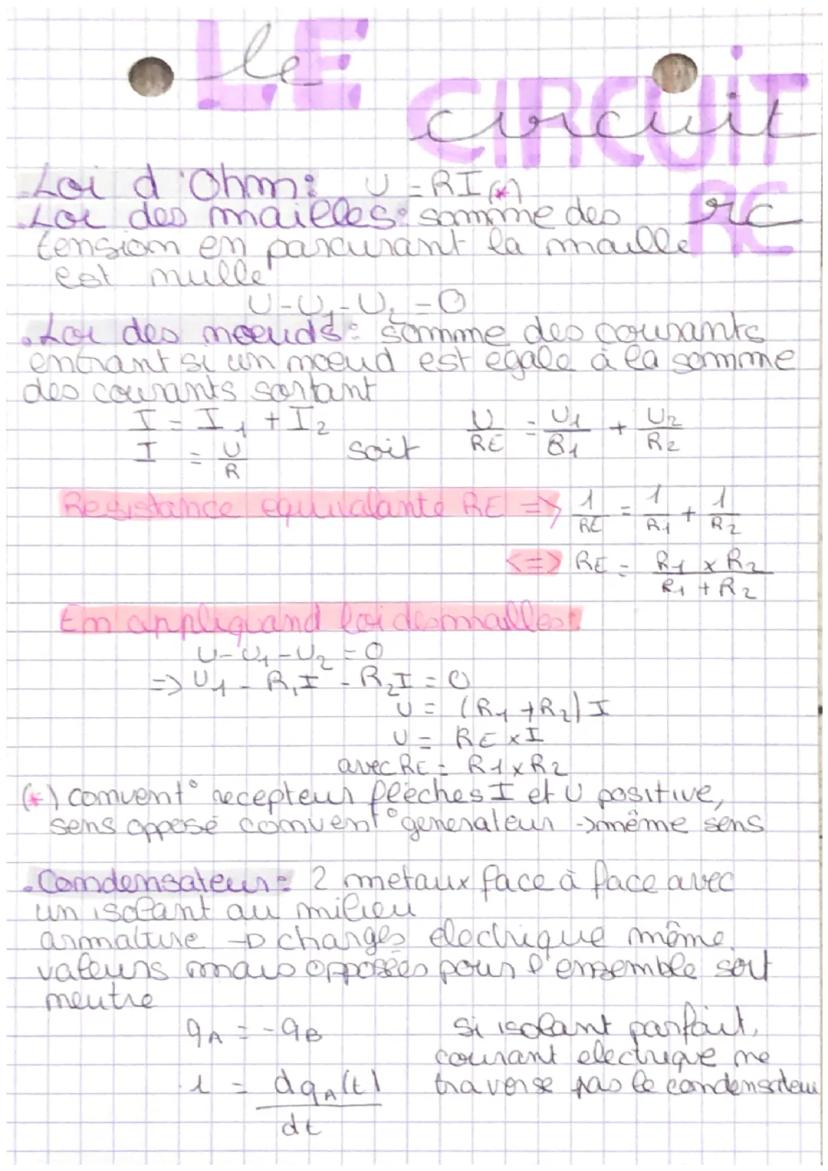 LE le
CIRCUIT circuit
RC rc
. Loi d'Ohm : U = RI (*)
. Loi des mailles : somme des
tension en parcurant la maille
est nulle
U - U₁ - U₂ = 0
. Loi des noeuds : somme des courants
entrant si un noeud est egale à la somme
des courants sortant
I = I₁ + I₂
I = U/R soit U/RE = U₁/B₁ + U₂/R₂
Resistance equivalante RE => 1/RE = 1/R₁ + 1/R₂
<=> RE = R₁ x R₂ / R₁ + R₂
En appliquand loi des mailles :
U - U₁ - U₂ = 0
=> U₁ - R₁I - R₂I = 0
U = (R₁ + R₂) I
U = RE x I
avec RE = R₁ x R₂
(*) convent° recepteur fleeches I et U positive,
sens opposé convent° generateur -> même sens
. Condensateur : 2 metaux face à face avec
un isolant au milieu
armature -> charges electrique même
valeurs mais opposées pour l'ensemble soit
neutre
qA = -qB si isolant parfait,
courant electrique ne
i = dqA(t) / dt traverse pas le condensateur